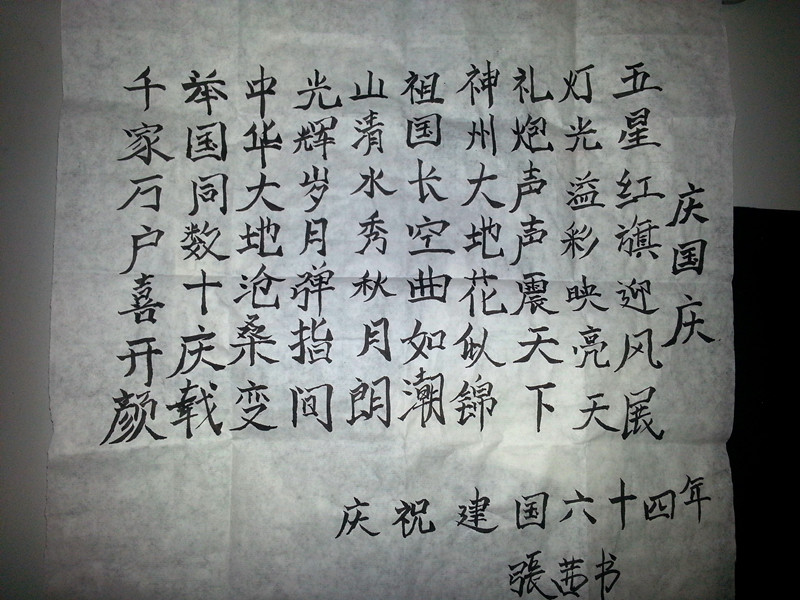 庆国庆
五星红旗迎风展
灯光溢彩映亮天
礼炮声声震天下
神州大地花似锦
祖国长空曲如潮
山清水秀秋月朗
光辉岁月弹指间
中华大地沧桑变
举国同数十庆载
千家万户喜开颜
庆祝建国六十四年
張茜书